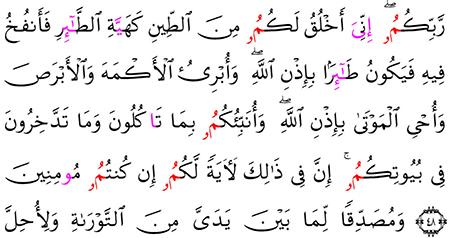 رَّبِّكُمُۥ ۖ إِنِّىَ أَخْلُقُ لَكُمُۥ مِنَ ٱلطِّينِ كَهَيَّةِ ٱلطَّٰٓئِرِ فَأَنفُخُ
فِيهِ فَيَكُونُ طَٰٓئِرًۢا بِإِذْنِ ٱللَّهِ ۖ وَأُبْرِئُ ٱلْأَكْمَهَ وَٱلْأَبْرَصَ
وَأُحْىِ ٱلْمَوْتَىٰ بِإِذْنِ ٱللَّهِ ۖ وَأُنَبِّئُكُمُۥ بِمَا تَاكُلُونَ وَمَا تَدَّخِرُونَ
فِى بُيُوتِكُمُۥ ۚ إِنَّ فِى ذَٰلِكَ لَأٓيَةً لَّكُمُۥ إِن كُنتُمُۥ مُومِنِينَ
٤٨ وَمُصَدِّقًا لِّمَا بَيْنَ يَدَىَّ مِنَ ٱلتَّوْرَىٰةِ وَلِأُحِلَّ